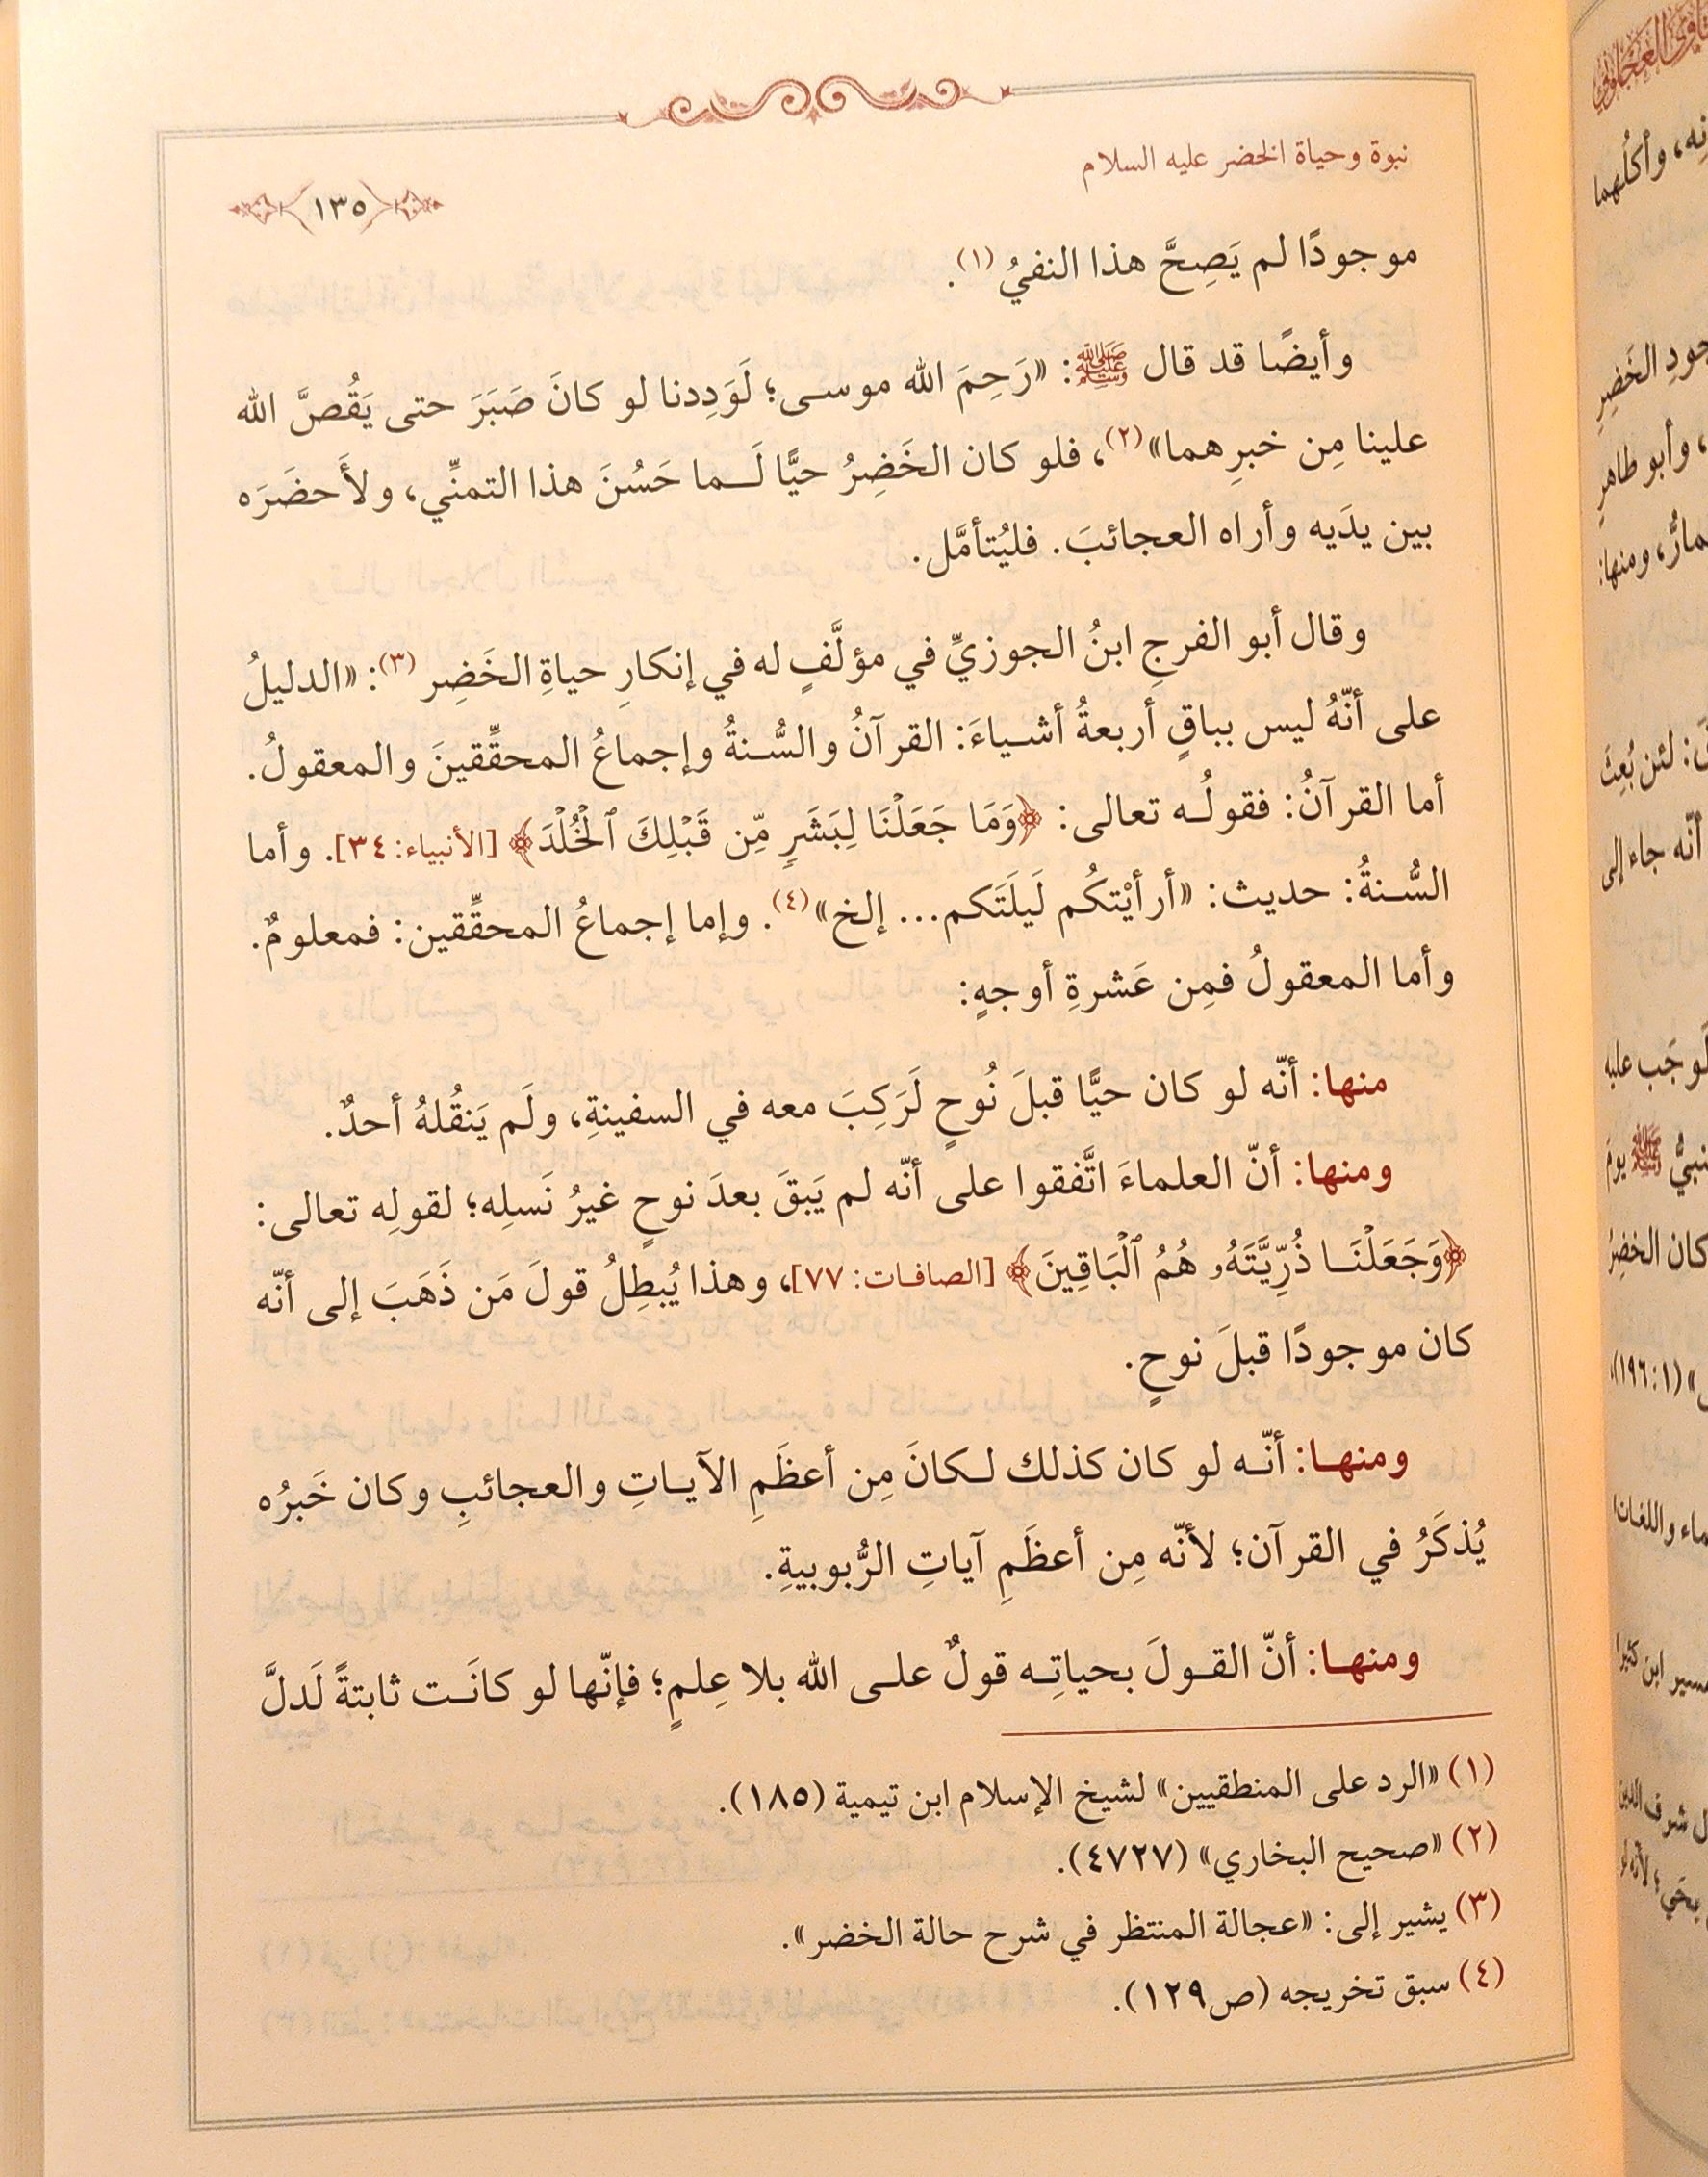 نبوة وحياة الخضر عليه السلام
١٣٥
موجودًا لم يَصِحَّ هذا النفيُ (١).
وأيضًا قد قال ﷺ: «رَحِمَ الله موسى؛ لَوَدِدنا لو كانَ صَبَرَ حتى يَقُصَّ الله
علينا مِن خبرِهما»(٢)، فلو كان الخَضِرُ حيًّا لَـما حَسُنَ هذا التمنِّي، ولأَحضَرَه
بين يدَيه وأراه العجائبَ. فليُتأمَّل.
وقال أبو الفرجِ ابنُ الجوزيِّ في مؤلَّفٍ له في إنكارِ حياةِ الخَضِر (٣): «الدليلُ
على أنّهُ ليس بباقٍ أربعةُ أشياءَ: القرآنُ والسُّنةُ وإجماعُ المحقِّقينَ والمعقولُ.
أما القرآنُ: فقولُه تعالى: ﴿وَمَا جَعَلْنَا لِبَشَرٍ مِّن قَبْلِكَ ٱلْخُلْدَ﴾ [الأنبياء: ٣٤]. وأما
السُّنةُ: حديث: «أرأيْتكُم لَيلَتَكم... إلخ»(٤). وإما إجماعُ المحقِّقين: فمعلومٌ.
وأما المعقولُ فمِن عَشرةِ أوجهٍ:
منها: أنّه لو كان حيًّا قبلَ نُوحٍ لَرَكِبَ معه في السفينةِ، ولَم يَنقُلهُ أحدٌ.
ومنها: أنّ العلماءَ اتَّفقوا على أنّه لم يَبقَ بعدَ نوحٍ غيرُ نَسلِه؛ لقولِه تعالى:
﴿وَجَعَلْنَا ذُرِّيَّتَهُۥ هُمُ ٱلْبَاقِينَ﴾ [الصافات: ٧٧]، وهذا يُبطِلُ قولَ مَن ذَهَبَ إلى أنّه
كان موجودًا قبلَ نوحٍ.
ومنها: أنّه لو كان كذلك لكانَ مِن أعظَمِ الآياتِ والعجائبِ وكان خَبرُه
يُذكَرُ في القرآن؛ لأنّه مِن أعظَمِ آياتِ الرُّبوبيةِ.
ومنها: أنّ القولَ بحياتِه قولٌ على الله بلا عِلمٍ؛ فإنّها لو كانَت ثابتةً لَدلَّ
(١) «الرد على المنطقيين» لشيخ الإسلام ابن تيمية (١٨٥).
(٢) «صحيح البخاري» (٤٧٢٧).
(٣) يشير إلى: «عجالة المنتظر في شرح حالة الخضر».
(٤) سبق تخريجه (ص١٢٩).
وأكلُهما
الخَضِرِ
، وأبو طاهرِ
ومنها:
لئن بُعِثَ
أنّه جاء إلى
لوجَب عليه
ﷺ يومَ
كان الخضِرُ
(١٩٦:١)
واللغات
ابن كثير
شرف الدين